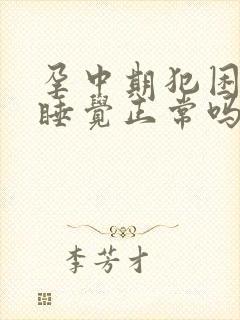 孕中期犯困
睡覺正常吗
李芳才